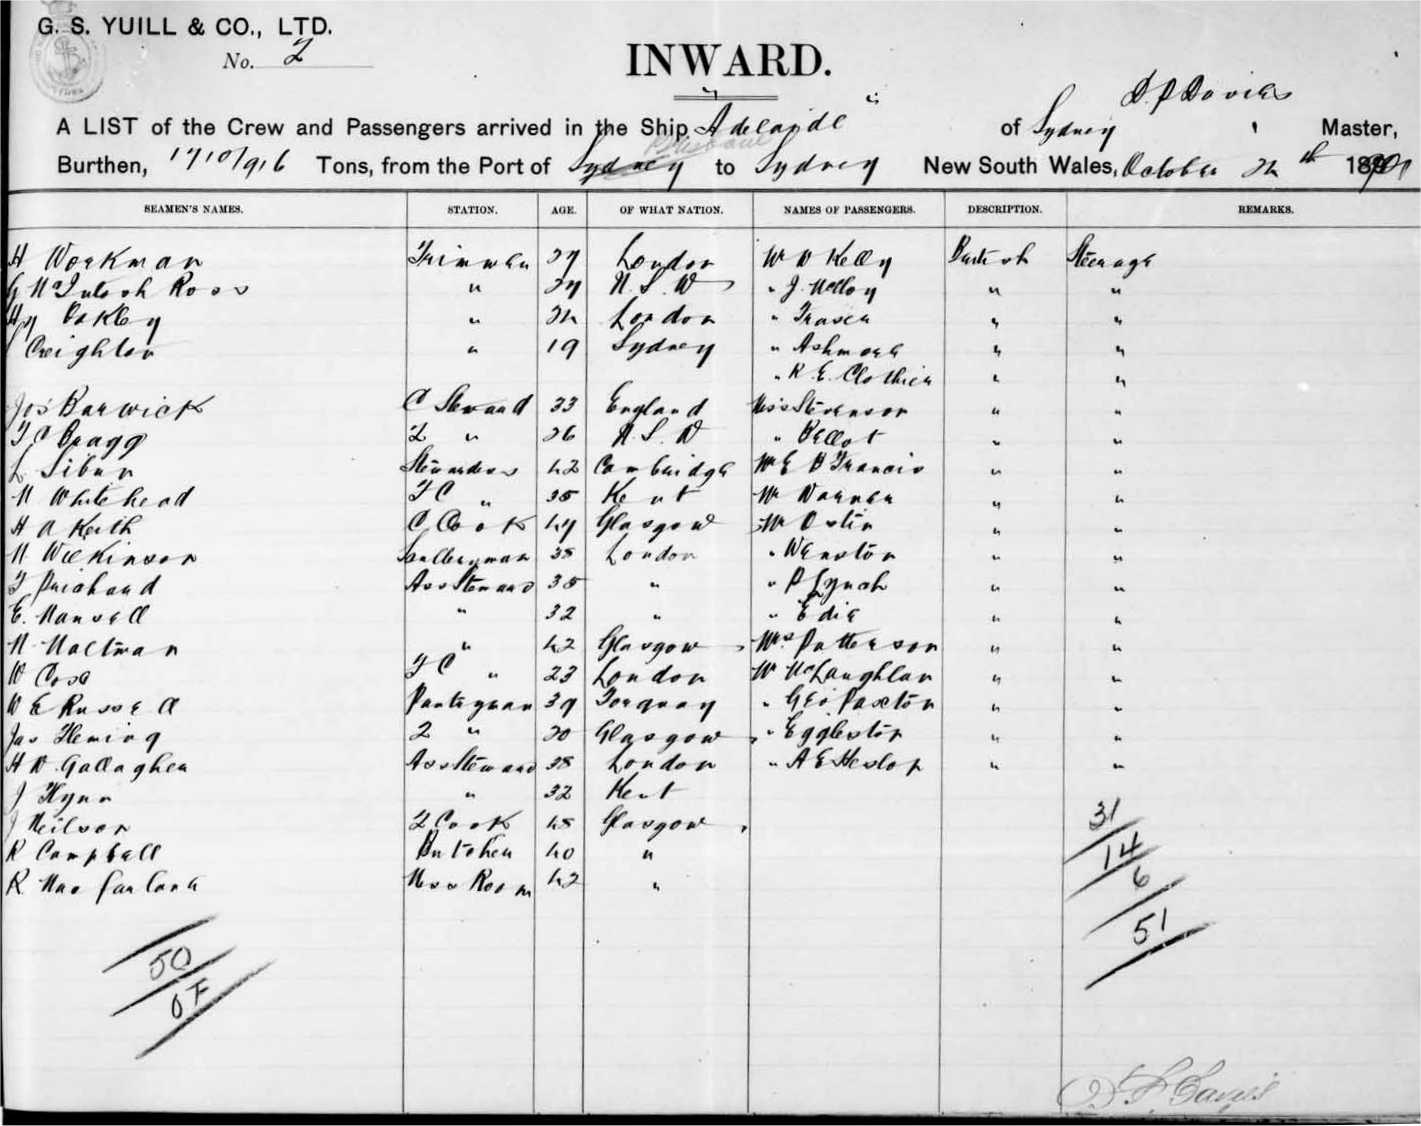 G. S. YUILL & CO., LTD.
No. 2
INWARD.
D. P. Davies
A LIST of the Crew and Passengers arrived in the Ship Adelaide of Sydney Master,
Burthen, 1710/916 Tons, from the Port of Sydney Brisbane to Sydney New South Wales, October 24th
SEAMEN'S NAMES. STATION. AGE. OF WHAT NATION. NAMES OF PASSENGERS. DESCRIPTION. REMARKS.
H Workman Trimmer 27 London Mr W Kelly British Steerage
G McIntosh Ross " 27 N. S. W " J. Molloy " "
Hy Oakley " 24 London " Fraser " "
Creighton " 19 Sydney " Ashmore " "
" R. E. Clothier " "
Jos Barwick C Steward 33 England Miss Stevenson " "
T C Bragg 2 " 26 N. S. W " Bellot " "
L Sibun Stewardess 42 Cambridge Mr E B Francis " "
M Whitehead F C " 35 Kent Mr Warner " "
H A Keith C. Cook 47 Glasgow Mr Ostin " "
M Wilkinson Sculleryman 38 London " Wenston " "
F Prichard Ass Steward 35 " " P Lynch " "
E. Mansell " 32 " " Edie " "
N Maltman " 42 Glasgow Mrs Patterson " "
W Cose F C " 23 London Mr McLaughlan " "
W E Russell Pantryman 39 Torquay " Geo Paxton " "
Jas Fleming 2 " 20 Glasgow " Eggleston " "
H W Gallagher Ass Steward 38 London " A E Heslop " "
J Flynn " 32 Kent
J Neilson 2 Cook 45 Glasgow
R Campbell Butcher 40 "
R Macfarlane Mess Room 42 "
31
14
6
51
50
OF
D. P. Davies